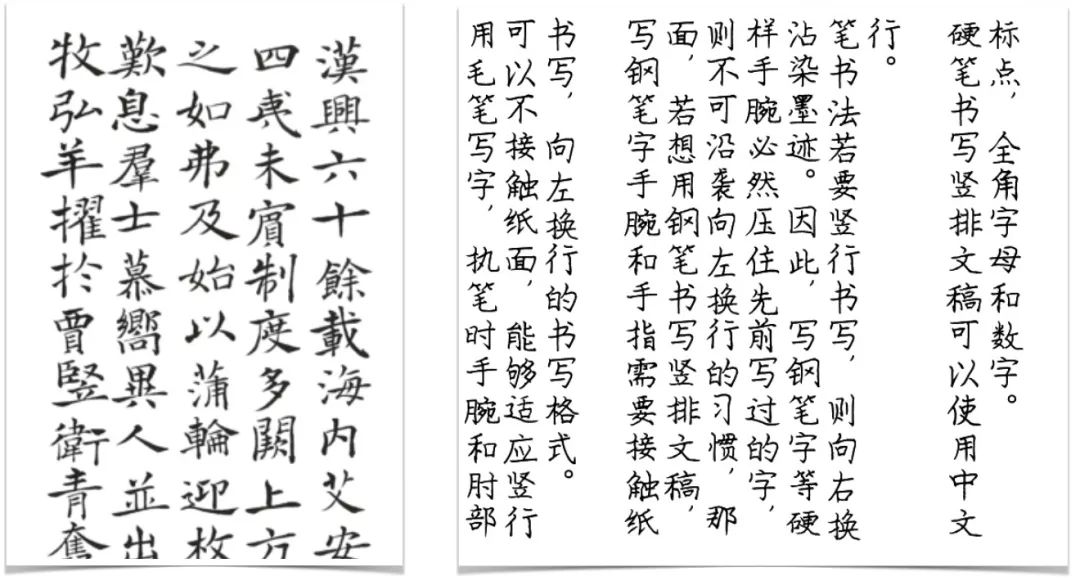 漢興六十餘載海内艾安
四夷未賓制度多闕上方
之如弗及始以蒲輪迎枚
歎息羣士慕嚮異人並出
牧弘羊擢於賈豎衛青奮
用毛笔写字，执笔时手腕和肘部
可以不接触纸面，能够适应竖行
书写，向左换行的书写格式。
写钢笔字手腕和手指需要接触纸
面，若想用钢笔书写竖排文稿，
则不可沿袭向左换行的习惯，那
样手腕必然压住先前写过的字，
沾染墨迹。因此，写钢笔字等硬
笔书法若要竖行书写，则向右换
行。
硬笔书写竖排文稿可以使用中文
标点，全角字母和数字。